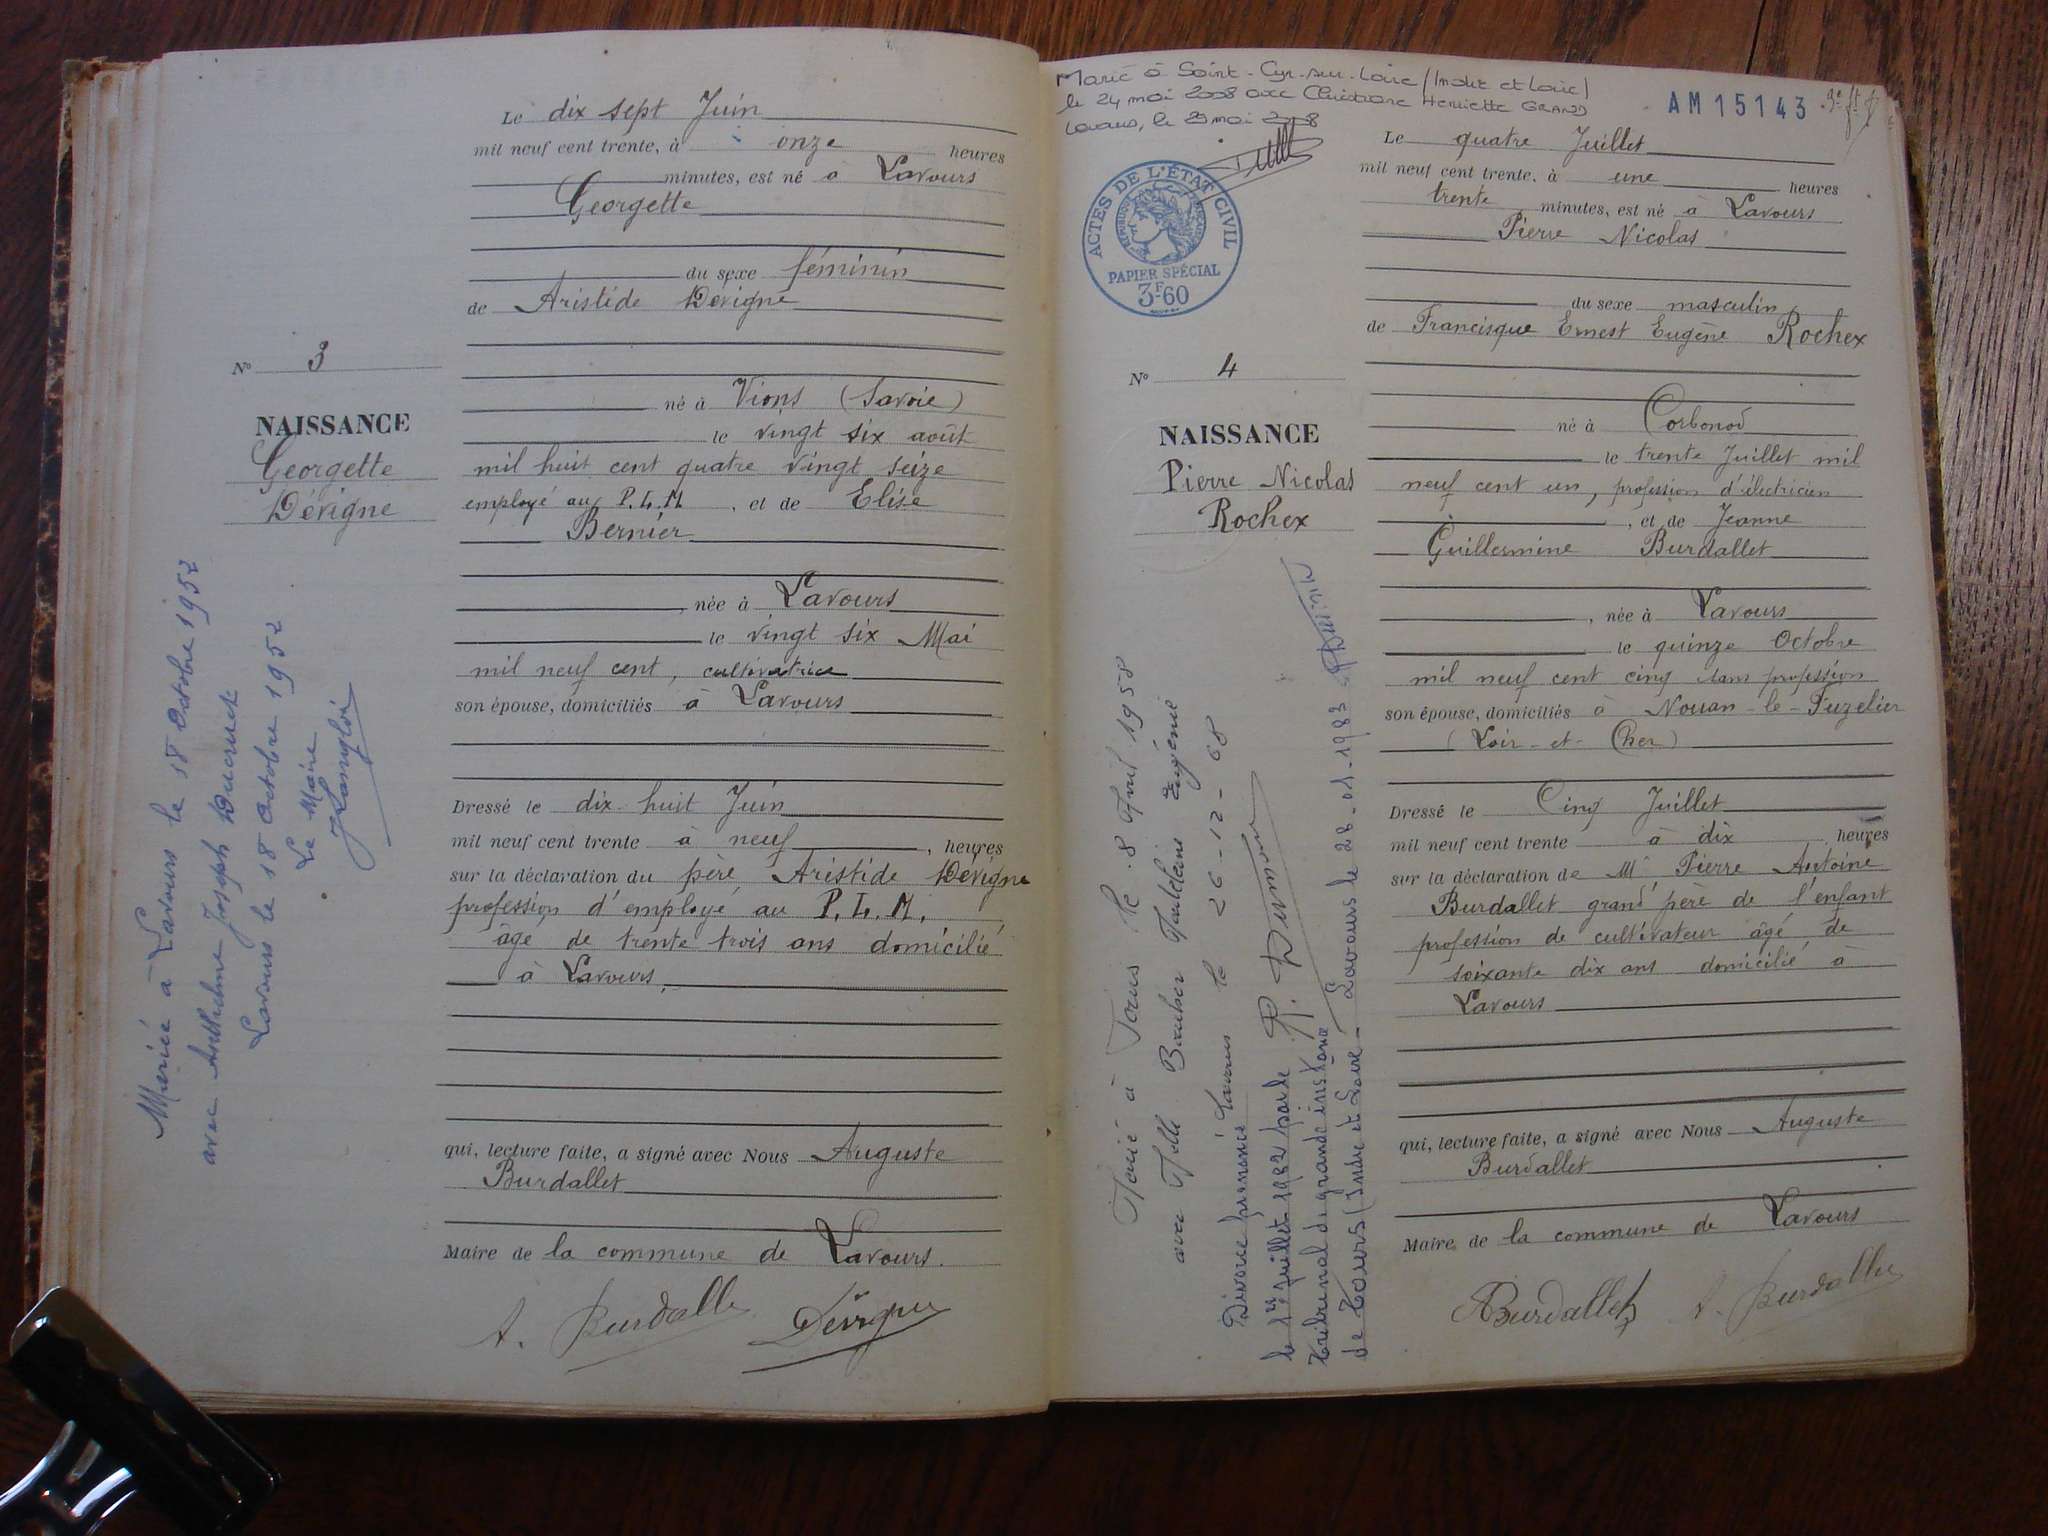 Le dix sept Juin
mil neuf cent trente, à onze heures
minutes, est né à Lavours
Georgette
du sexe féminin
de Aristide Dévigne
né à Vions (Savoie)
le vingt six août
mil huit cent quatre vingt seize
employé au P.L.M. , et de Elise
Bernier
, née à Lavours
le vingt six Mai
mil neuf cent, cultivatrice
son épouse, domiciliés à Lavours
Dressé le dix-huit Juin
mil neuf cent trente à neuf , heures
sur la déclaration du père Aristide Dévigne
profession d'employé au P.L.M.
âgé de trente trois ans domicilié
à Lavours
qui, lecture faite, a signé avec Nous Auguste
Burdallet
Maire de la commune de Lavours.
A. Burdallet Dévigne
N° 3
NAISSANCE
Georgette
Dévigne
Mariée à Lavours le 18 Octobre 1952
avec Anthelme Joseph Ducruet
Lavours le 18 Octobre 1952
Le Maire
Marié à Saint-Cyr-sur-Loire (Indre et Loire)
le 24 mai 2008 avec Christiane Henriette GRAND
Lavours, le 29 mai 2008
AM 15143
ACTES DE L'ÉTAT CIVIL
PAPIER SPÉCIAL
3F-60
N° 4
NAISSANCE
Pierre Nicolas
Rochex
Le quatre Juillet
mil neuf cent trente, à une heures
trente minutes, est né à Lavours
Pierre Nicolas
du sexe masculin
de Francisque Ernest Eugène Rochex
né à Corbonod
le trente Juillet mil
neuf cent un, profession d'électricien
, et de Jeanne
Guillermine Burdallet
, née à Lavours
le quinze Octobre
mil neuf cent cinq sans profession
son épouse, domiciliés à Nouan-le-Fuzelier
(Loir-et-Cher)
Dressé le Cinq Juillet
mil neuf cent trente à dix heures
sur la déclaration de Mr Pierre Antoine
Burdallet grand'père de l'enfant
profession de cultivateur âgé de
soixante dix ans domicilié à
Lavours
qui, lecture faite, a signé avec Nous Auguste
Burdallet
Maire de la commune de Lavours
Burdallet A. Burdallet
Marié à Tours le 8 Avril 1958
avec Melle Madeleine Eugénie
Lavours le 26-12-58
P. Dumont
Divorce prononcé
le 1er juillet 1982 par le
Tribunal de grande instance
de Tours (Indre et Loire - Lavours le 28-01-1983